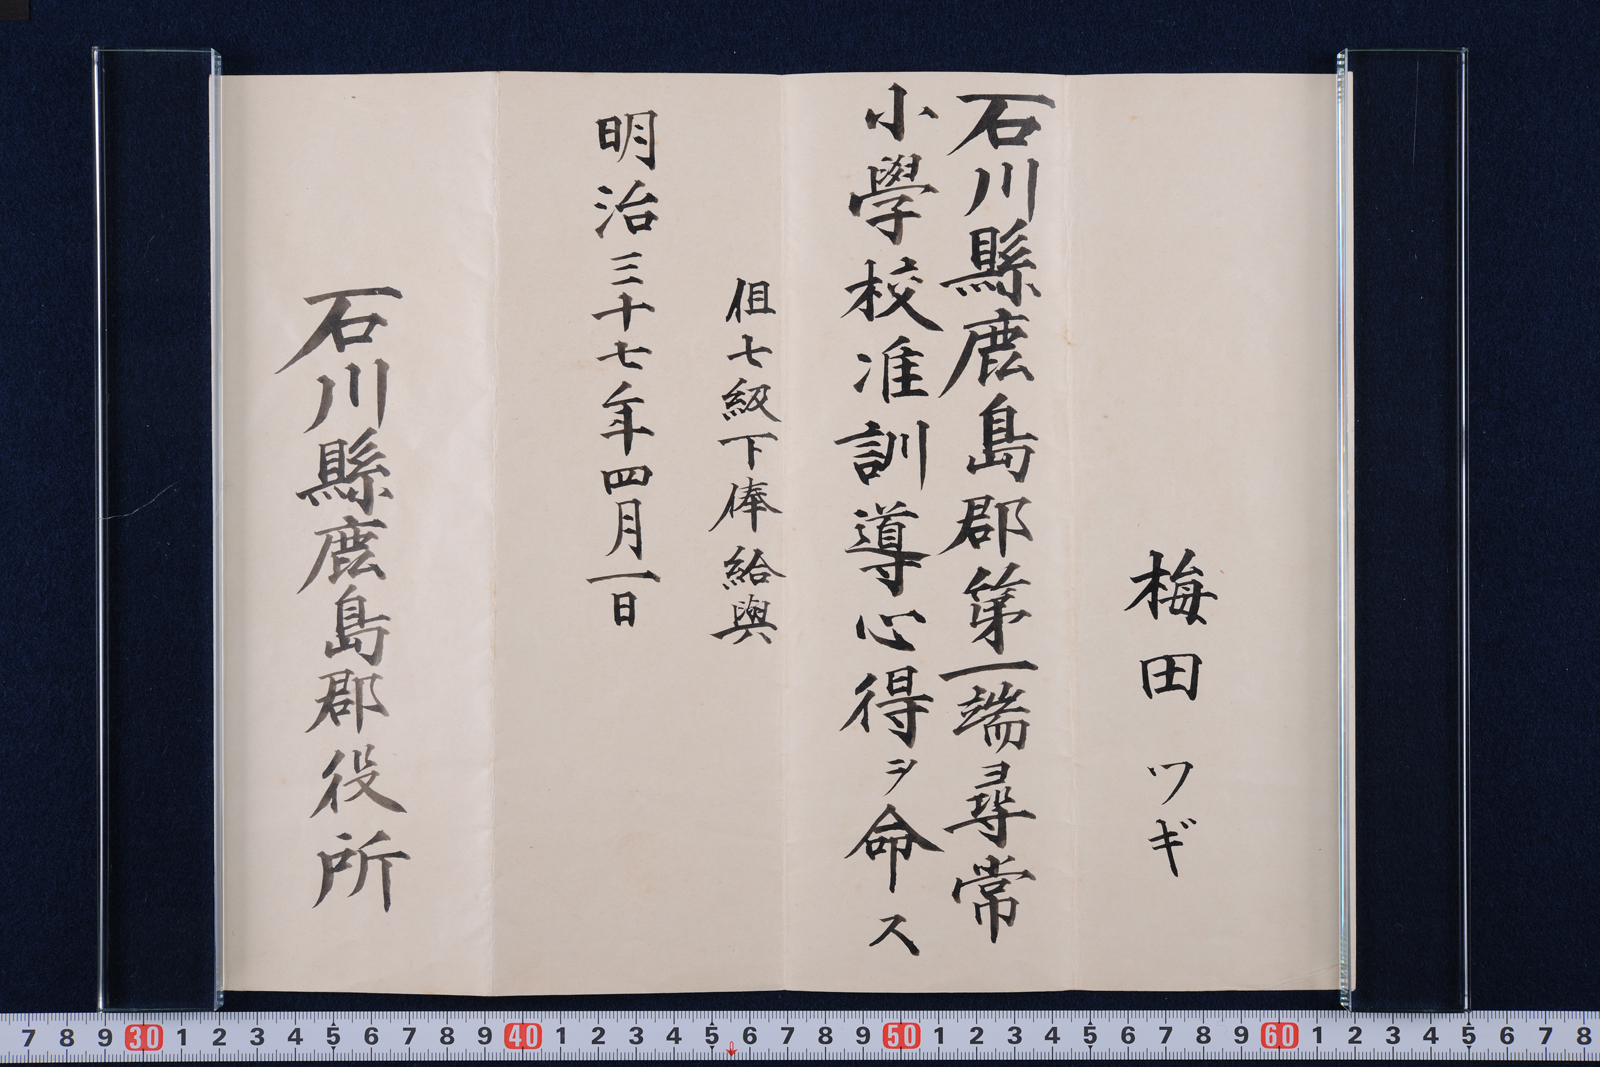 梅田ツギ
石川縣鹿島郡第一端尋常
小學校准訓導心得ヲ命ス
但七級下俸給與
明治三十七年四月一日
石川縣鹿島郡役所
7 8 9 30 1 2 3 4 5 6 7 8 9 40 1 2 3 4 5 6 7 8 9 50 1 2 3 4 5 6 7 8 9 60 1 2 3 4 5 6 7 8